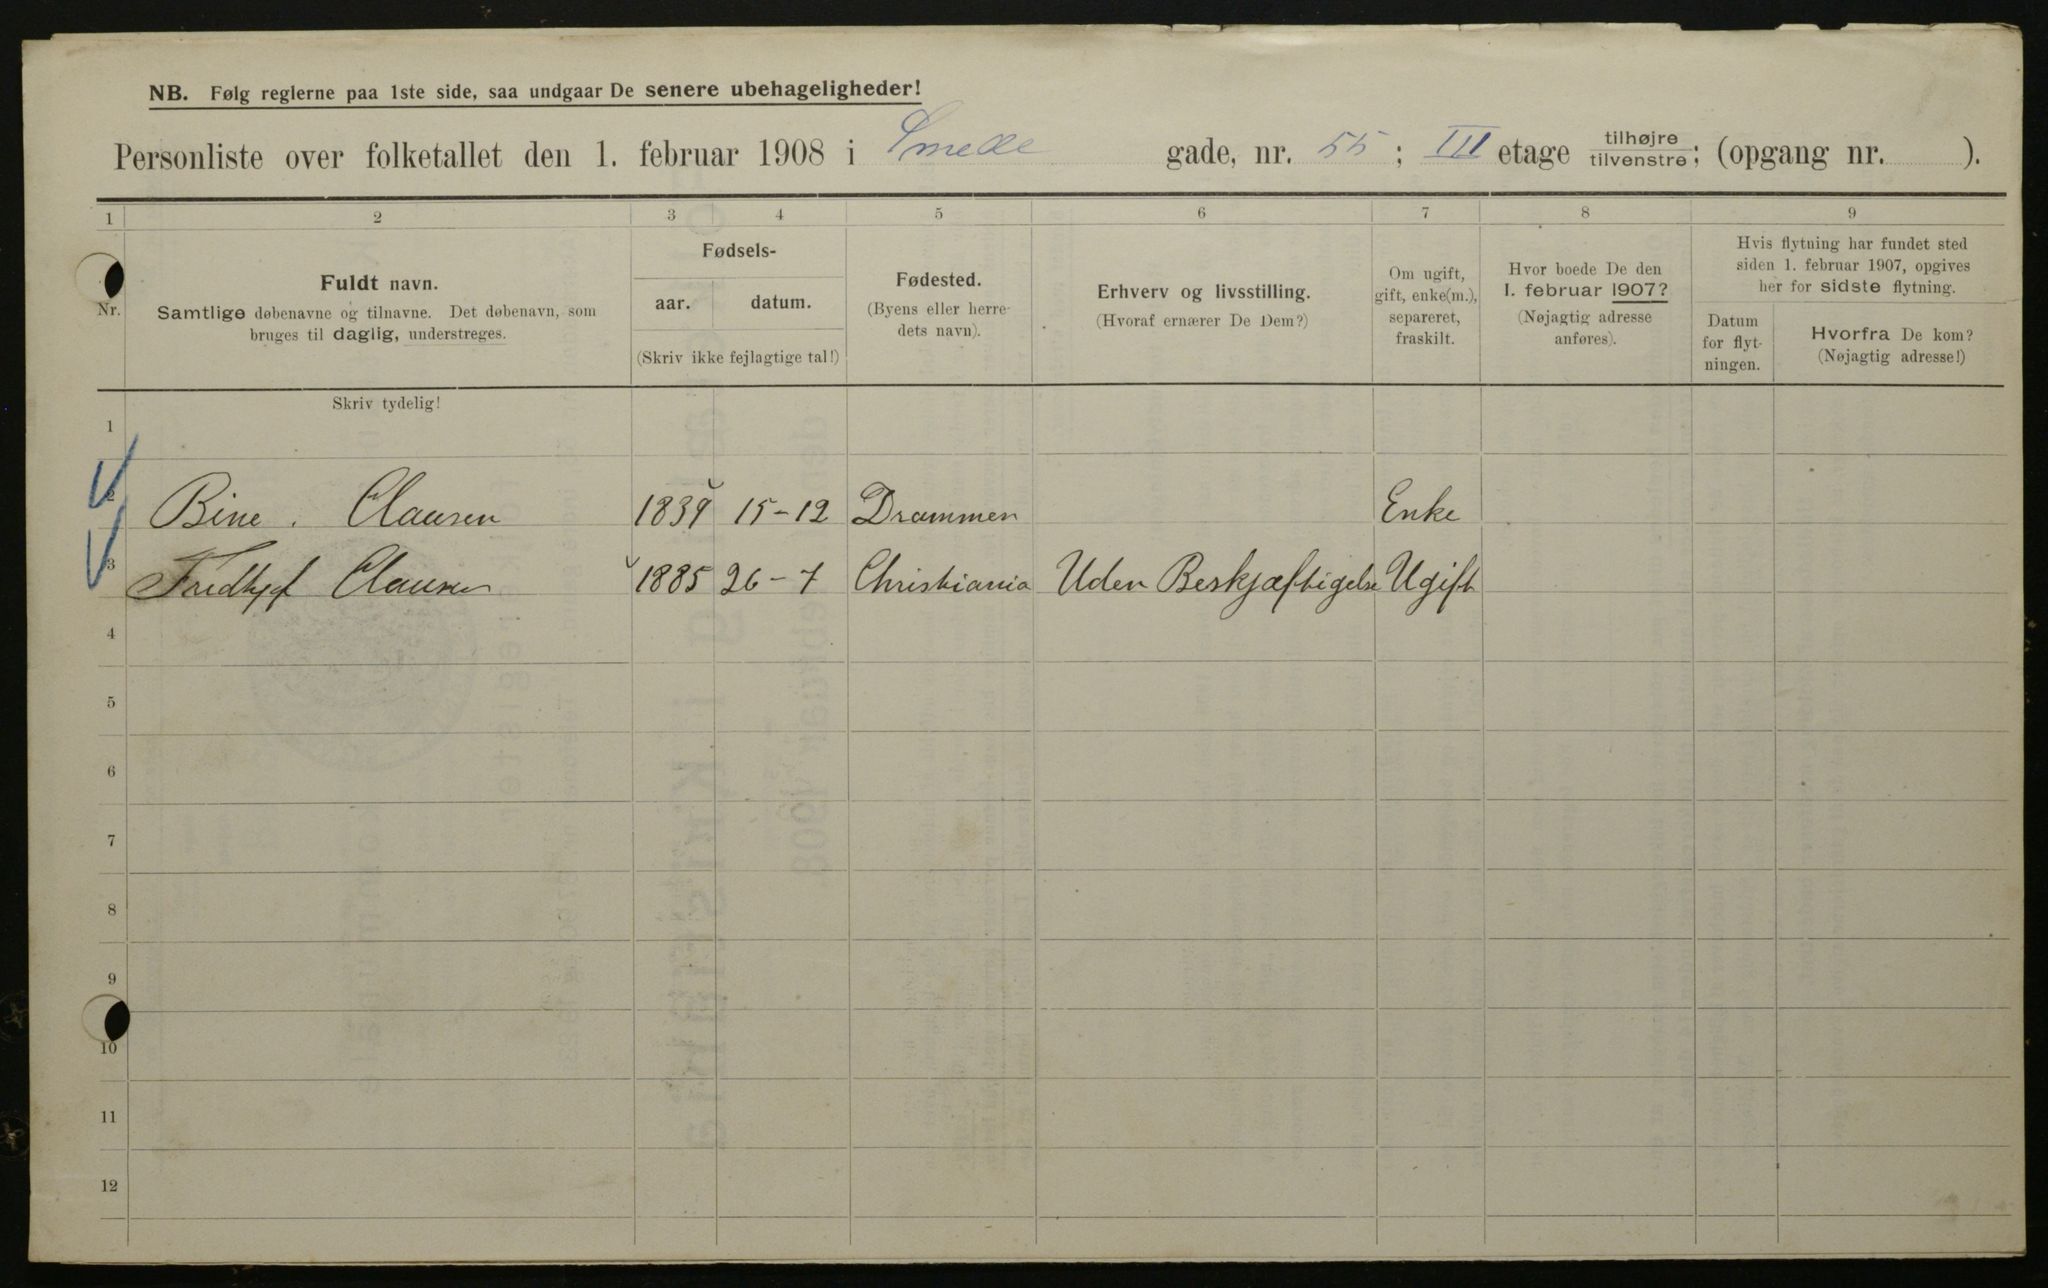 NB. Følg reglerne paa 1ste side, saa undgaar De senere ubehageligheder!
Personliste over folketallet den 1. februar 1908 i Smede gade, nr. 55; III etage tilhøjre tilvenstre; (opgang nr. ).
1 2 3 4 5 6 7 8 9
Nr.
Fuldt navn.
Samtlige døbenavne og tilnavne. Det døbenavn, som
bruges til daglig, understreges.
Fødsels-
aar. datum.
(Skriv ikke fejlagtige tal!)
Fødested.
(Byens eller herre-
dets navn).
Erhverv og livsstilling.
(Hvoraf ernærer De Dem?)
Om ugift,
gift, enke(m.),
separeret,
fraskilt.
Hvor boede De den
1. februar 1907?
(Nøjagtig adresse
anføres).
Hvis flytning har fundet sted
siden 1. februar 1907, opgives
her for sidste flytning.
Datum
for flyt-
ningen.
Hvorfra De kom?
(Nøjagtig adresse!)
Skriv tydelig!
1
2 Bine. Clausen 1839 15-12 Drammen Enke
3 Fredhjof Clausen 1885 26-7 Christiania Uden Beskjæftigelse Ugift
4
5
6
7
8
9
10
11
12